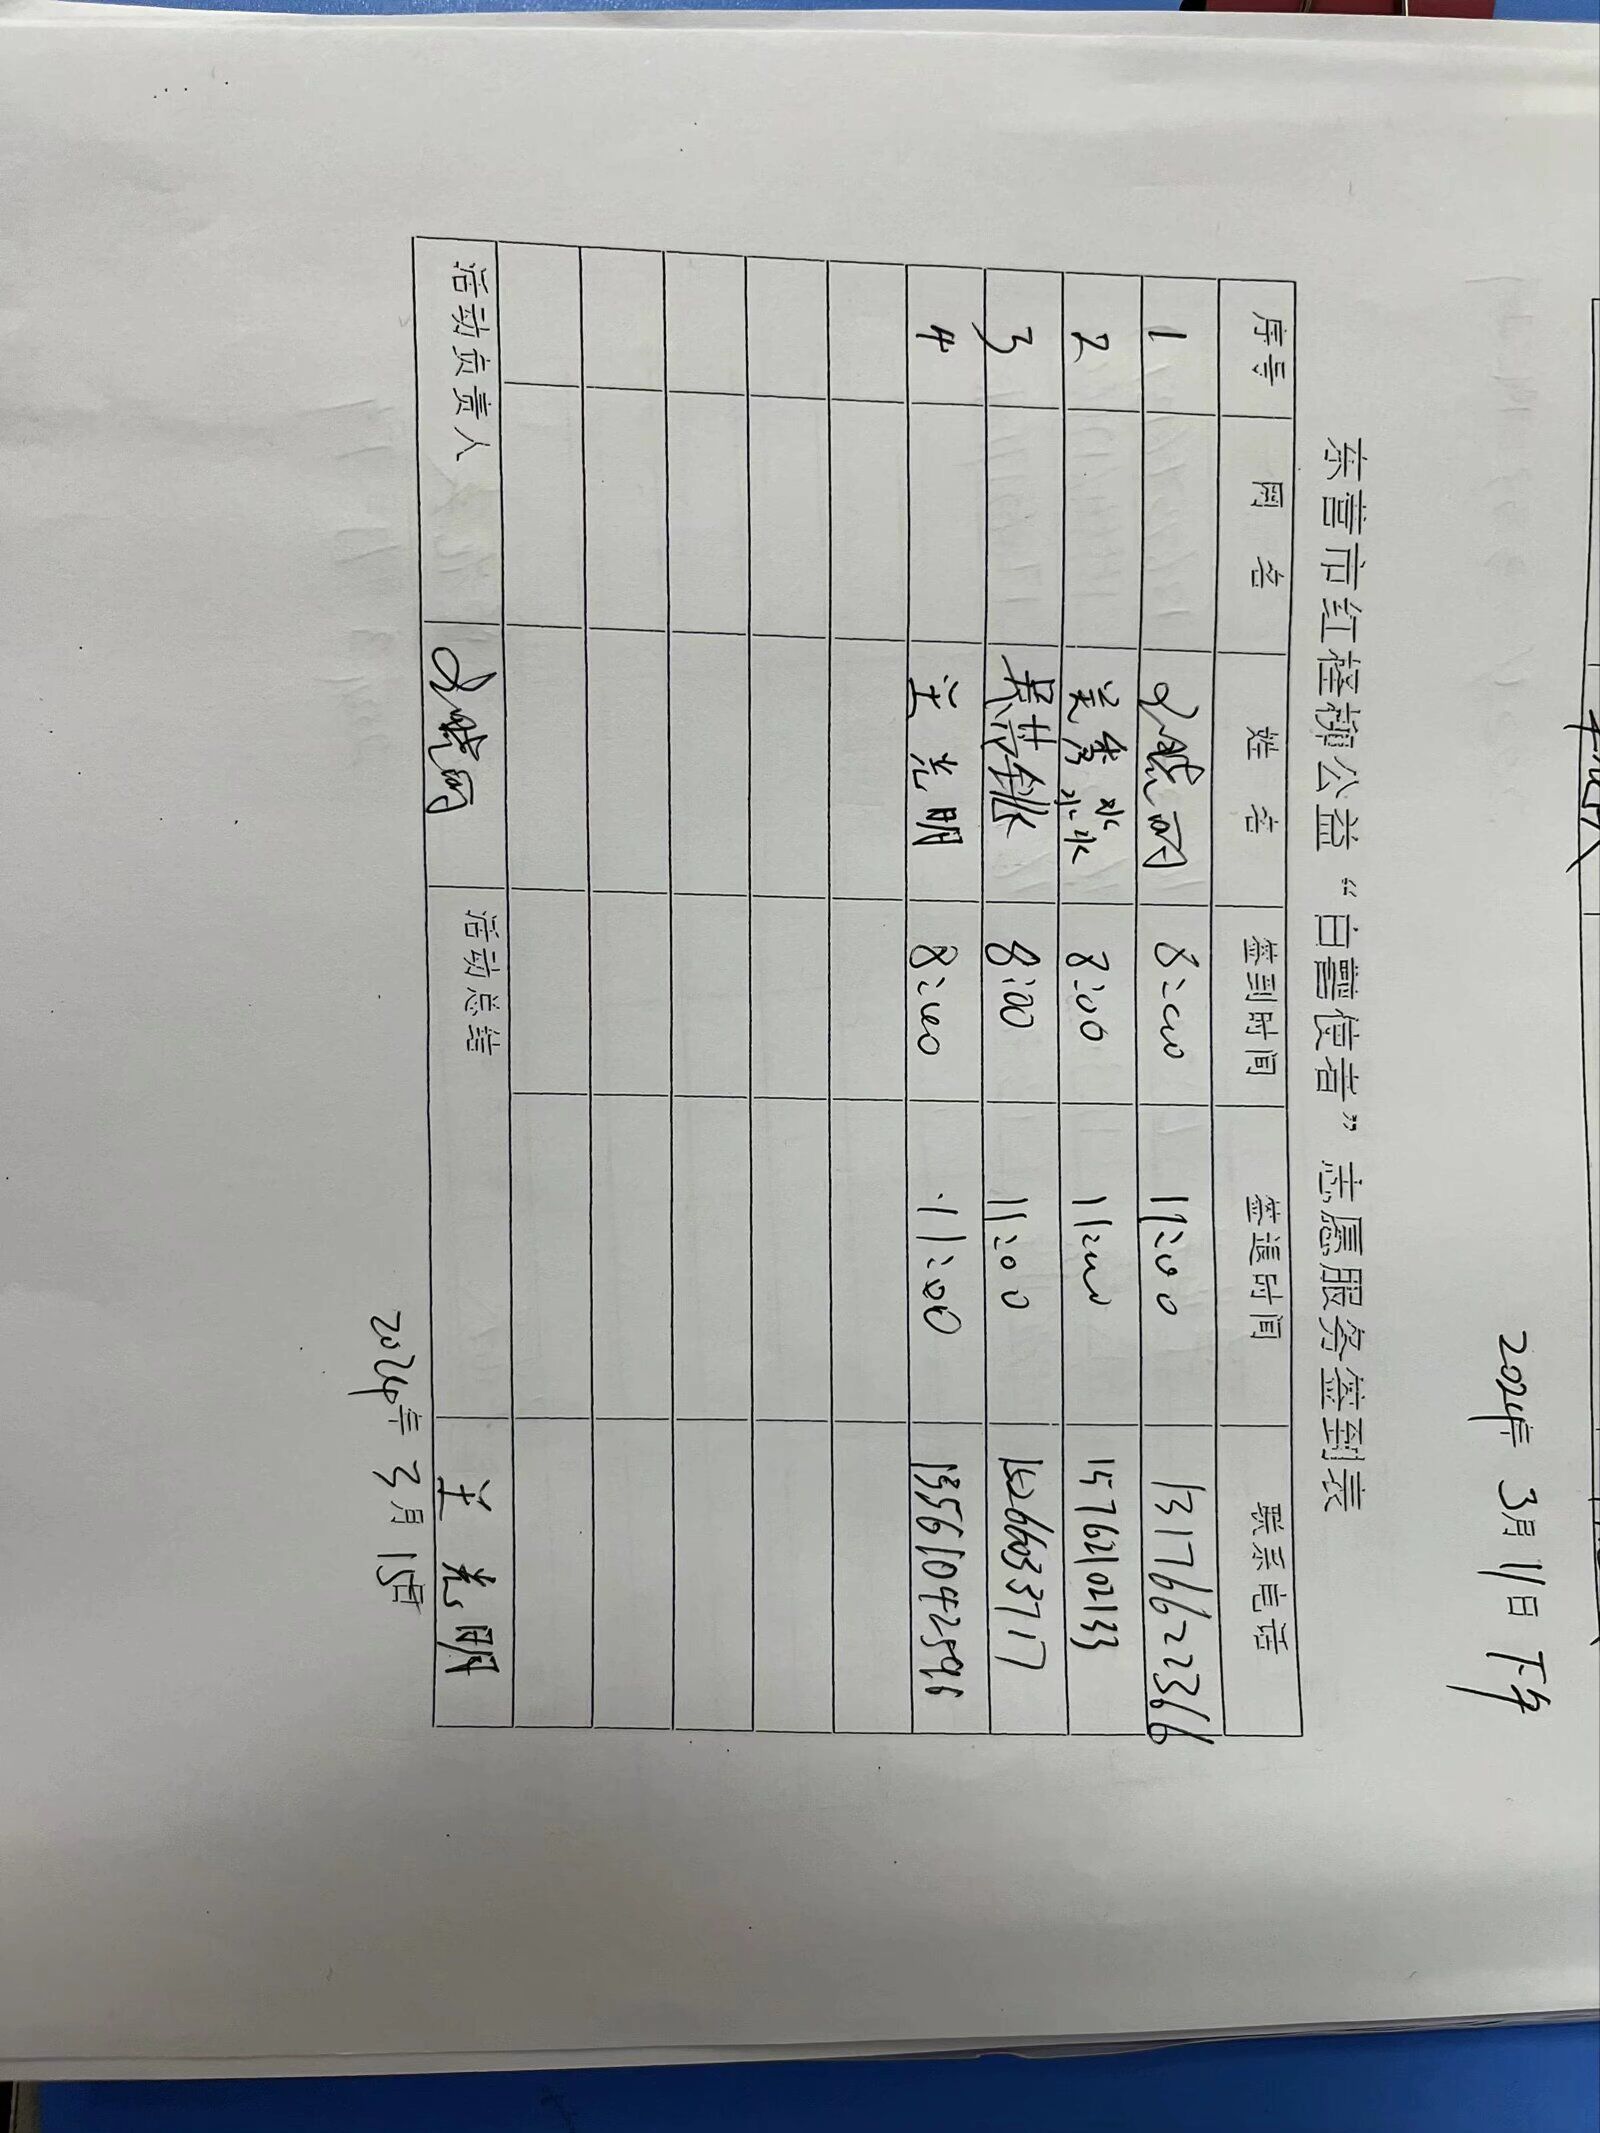 2024年 3月11日 下午
东营市红柽柳公益“白鹭使者”志愿服务签到表
序号 网 名 姓 名 签到时间 签退时间 联系电话
1 8:00 11:00 13176622366
2 8:00 11:00 15762102133
3 8:00 11:00 15266033717
4 关光明 8:00 11:00 13561042596
活动负责人 活动总结 关光明
2024年 3月15日